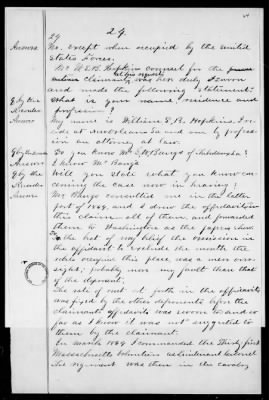 29.
29
Answer
No, except when occupied by the United
States Forces.
Mr W.E.B. Hopkins counsel for the
claimant, was here duly sworn
and made the following statement:
What is your name, residence and
profession?
Answer
My name is William S. B. Hopkins. I re-
side at New Orleans La and am by profess-
ion an attorney at law.
Do you know Mr
Answer
I know Mr Burge
Q by the
Will you state what you know con-
cerning the case now in hearing?
Answer
Mr Burge consulted me in the latter
part of 1869, and I drew the affidavits in
this claim all of them, and forwarded
them to Washington as the papers show.
To the best of my belief the omission in
the affidavit to mention the mules
while occupied this place was a mere over-
sight, probably more my fault than that
of the deponent.
The rate of rent set forth in the affidavits
was fixed by the other deponents before the
claimants affidavit was sworn to and so
far as I know it was not suggested to
them by the claimant.
In March 1864 I commanded the Thirty first
Massachusetts Volunteers as Lieutenant Colonel
The regiment was then in the cavalry